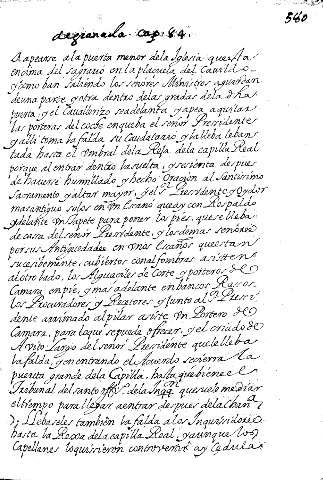 de granada. Cap. 84.
580
A apearse a la puerta menor de la Iglesia que esta
encima del sagrario en la plaçuela del
y como ban saliendo los señores Ministros aguardan
de una parte y otra dentro de las gradas de la dha
puerta, y el Cauallerizo se adelanta, y apea a quitar
las porteras del coche enqueba el señor Presidente
y alli toma la falda su Caudatario y la lleba leban
tada hasta el Umbral de la Rexa de la capilla Real
porque al entrar dentro la suelta, y se sienta despues
de hauerse humillado y hecho Oraçion al Santissimo
Sacramento y altar mayor, y el Sr Presidente y Oydor
mas antiguo solos en Un Escaño que ay con Respaldo
y delante Un tapete para poner los pies, que se lleba
de casa del señor Presidente, y los demas señores
por sus Antiguedades en Unos Escaños que estan
sucesibamente, cubiertos con alfombras asisten
al otro lado, los Alguaciles de Corte y porteros de
Camara en pie, y mas adelante en bancos Rasos
los Procuradores y Reçetores y Junto al Sr Presi
dente arrimado al pilar asiste Un Portero de
Camara, para lo que se puede ofrecer, y el criado de
Avito Largo del señor Presidente que le lleba
la falda, y en entrando el Acuerdo se cierra la
puerta grande de la Capilla, hasta que biene el
Tribunal del santo offo de la Inqon que suele mediar
el tiempo para llegar a entrar despues de la chanca
y llebaseles tambien la falda a los Inquisidores
hasta la Rexa de la capilla Real y aunque los
Capellanes lo quisieron controvertir ay Cedula